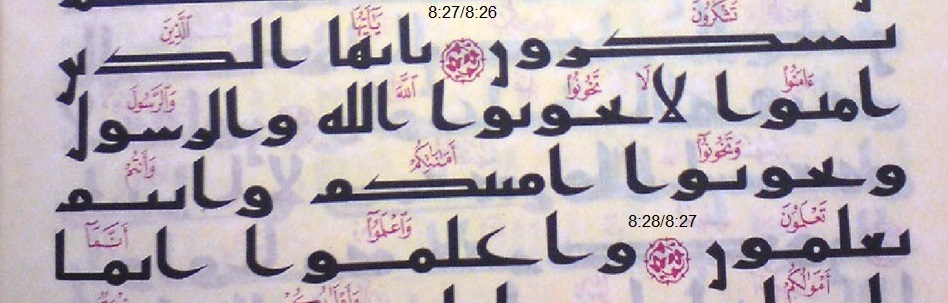 8:27/8:26
تَشْكُرُونَ يَٰٓأَيُّهَا ٱلَّذِينَ
تشكرون يايها الذين
ءَامَنُوا۟ لَا تَخُونُوا۟ ٱللَّهَ وَٱلرَّسُولَ
امنوا لا تخونوا الله والرسول
وَتَخُونُوٓا۟ أَمَٰنَٰتِكُمْ وَأَنتُمْ
وتخونوا امنتكم وانتم
8:28/8:27
تَعْلَمُونَ وَٱعْلَمُوٓا۟ أَنَّمَآ
تعلمون واعلموا انما
أَمْوَٰلُكُمْ